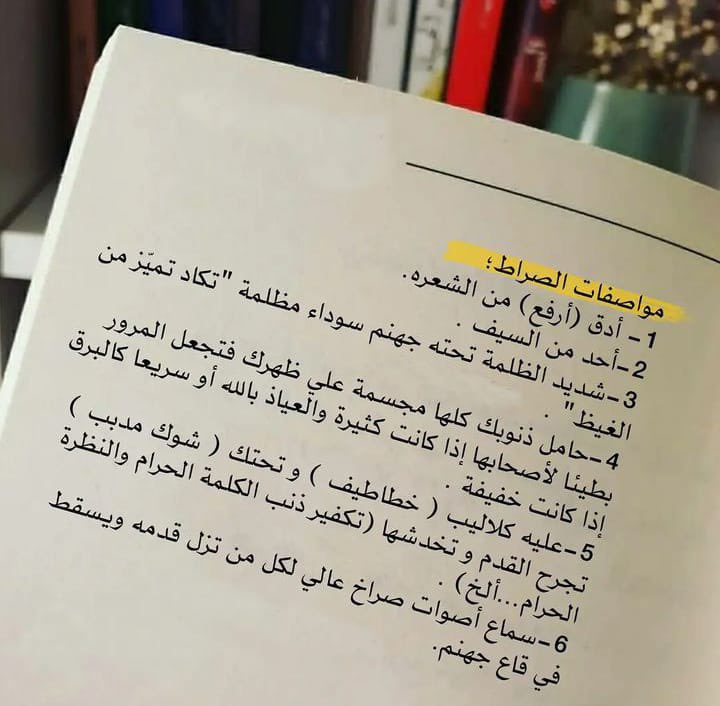 مواصفات الصراط؛
1- أدق (أرفع) من الشعره.
2-أحد من السيف .
3-شديد الظلمة تحته جهنم سوداء مظلمة "تكاد تميّز من
الغيظ" .
4-حامل ذنوبك كلها مجسمة علي ظهرك فتجعل المرور
بطيئا لأصحابها إذا كانت كثيرة والعياذ بالله أو سريعا كالبرق
إذا كانت خفيفة .
5-عليه كلاليب ( خطاطيف ) و تحتك ( شوك مدبب )
تجرح القدم و تخدشها (تكفير ذنب الكلمة الحرام والنظرة
الحرام...ألخ) .
6-سماع أصوات صراخ عالي لكل من تزل قدمه ويسقط
في قاع جهنم.